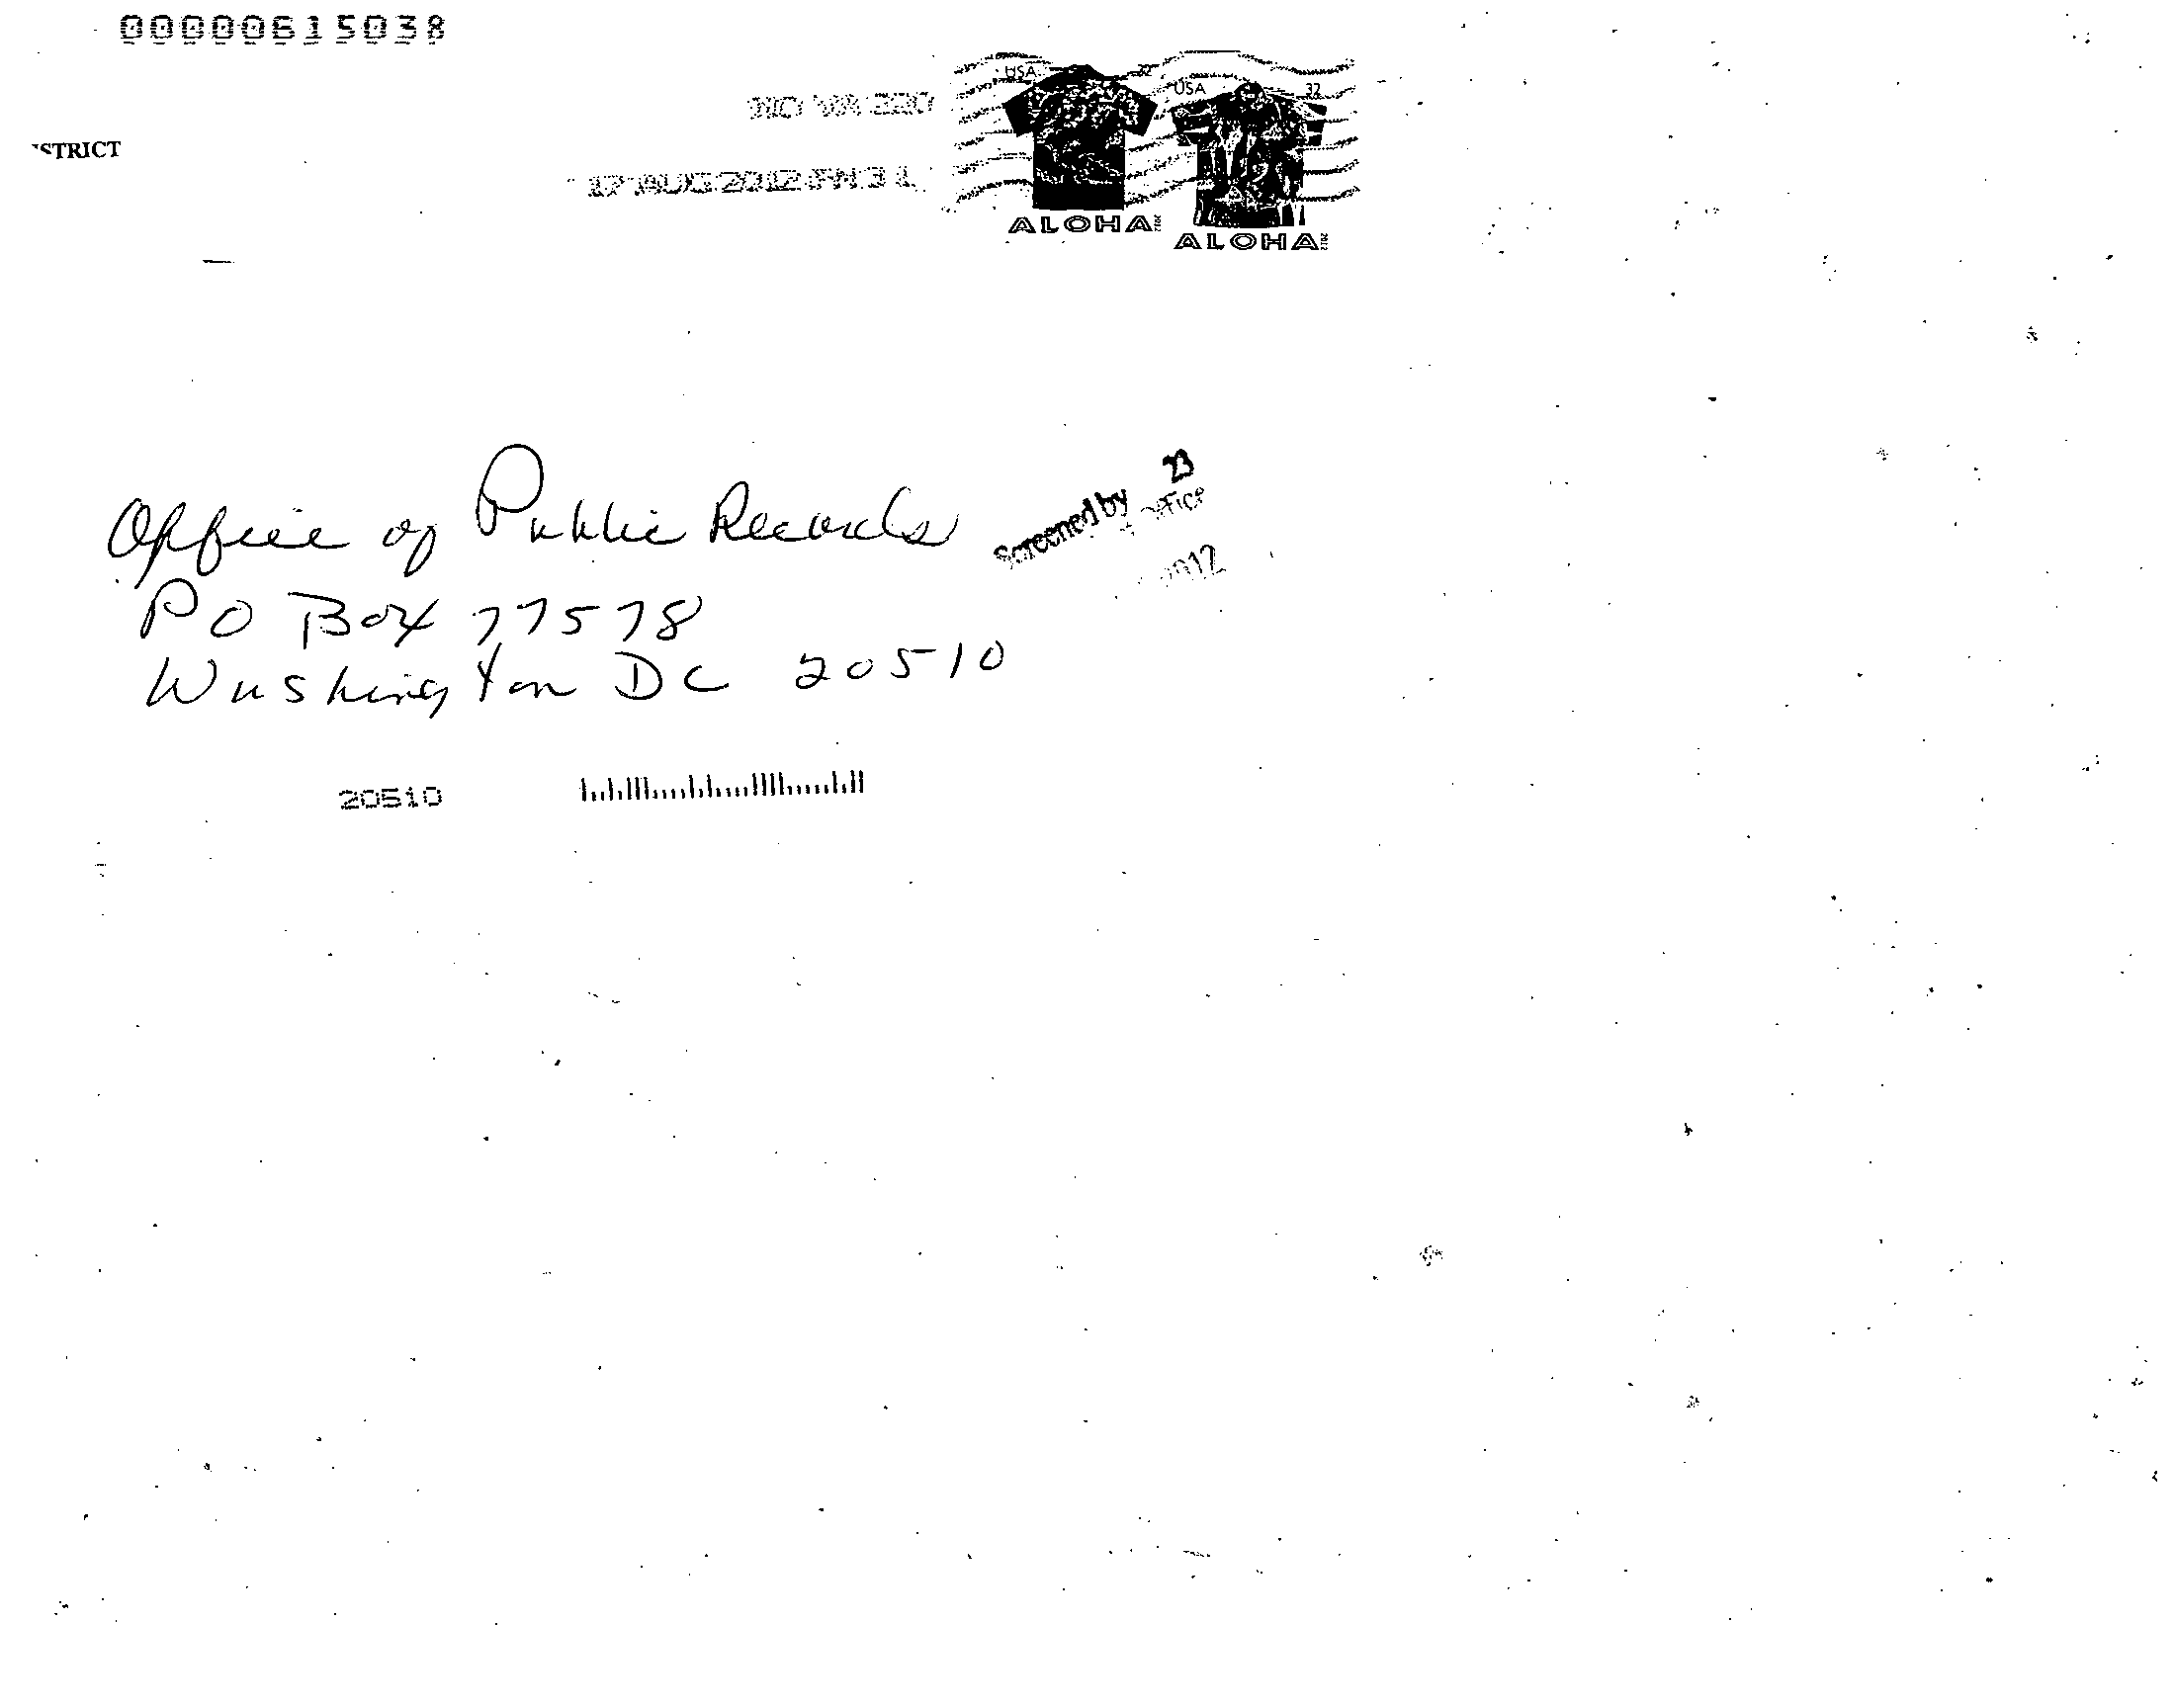 00000615038
NO VA 220
STRICT
17 AUG 2012 PM 3 L
USA 32
ALOHA 2012
USA 32
ALOHA 2012
Office of Public Records
PO Box 77578
Washington DC 20510
Screened by 23
2012
20510